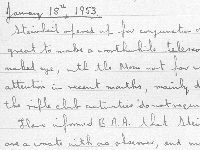 January 18th, 1953.
Steinheil opened up for conjunction o
great to make a worthwhile telesco
naked eye, with the Moon not far
attention in recent months, mainly d
the rifle club activities do not
Have informed B.A.A. that Stei
are a waste with no observer, and